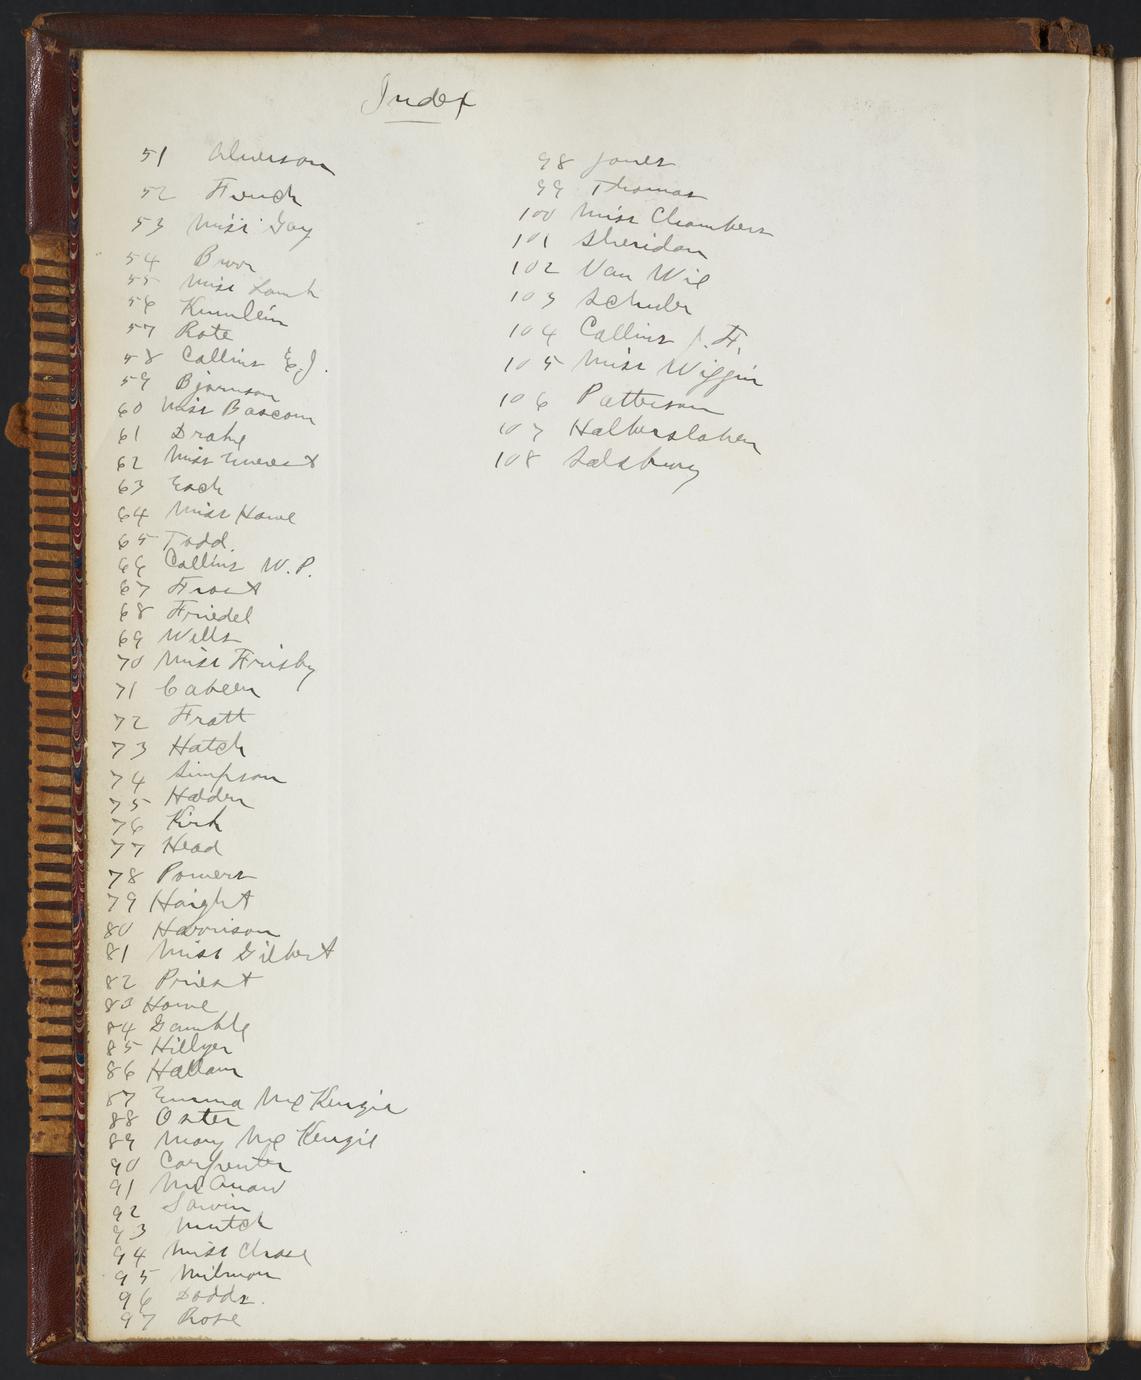 Index
51 Alverson
52 Finch
53 Miss Gay
54 Bwor
55 Miss Lamb
56 Kumlein
57 Rote
58 Collins E.J.
59 Bjornson
60 Miss Bascom
61 Drake
62 Miss Everest
63 Esch
64 Miss Howe
65 Todd
66 Collins W.P.
67 Frost
68 Friedel
69 Wells
70 Miss Frisby
71 Cabeen
72 Fratt
73 Hatch
74 Simpson
75 Holden
76 Kirk
77 Head
78 Powers
79 Haight
80 Harrison
81 Miss Gilbert
82 Priest
83 Howe
84 Gamble
85 Hillyer
86 Hallam
87 Emma McKenzie
88 Oster
89 Mary McKenzie
90 Carpenter
91
92 Sawin
93 Mutch
94 Miss Chase
95 Milmon
96 Dodds.
97 Rose
98 Jones
99 Thomas
100 Miss Chambers
101 Sheridan
102 Van Wie
103 Schuler
104 Collins J.H.
105 Miss Wiggin
106 Patterson
107 Halbersleben
108 Salsbury